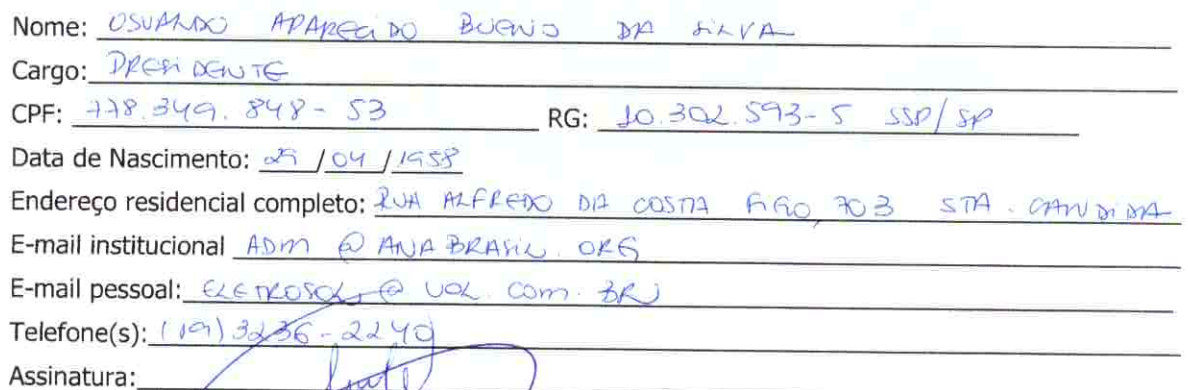 Nome: OSVALDO APARECIDO BUENO DA SILVA
Cargo: PRESIDENTE
CPF: 778.349.848-53 RG: 10.302.593-5 SSP/SP
Data de Nascimento: 29/04/1958
Endereço residencial completo: RUA ALFREDO DA COSTA FIGO, 703 STA. CANDIDA
E-mail institucional ADM @ ANABRASIL.ORG
E-mail pessoal: ELETROSOL @ UOL.COM.BR
Telefone(s): (19) 3236-2240
Assinatura: